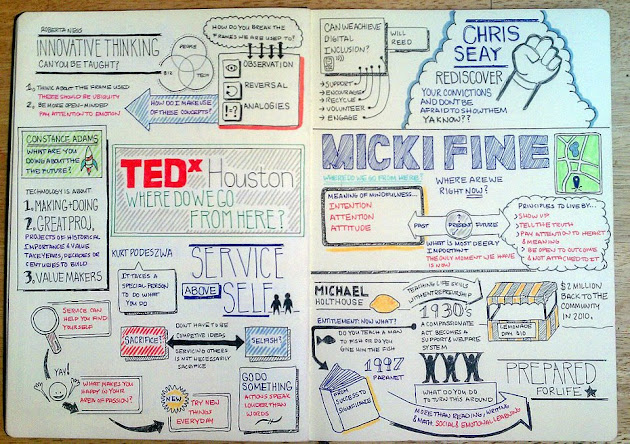 ROBERTA NESS
INNOVATIVE THINKING
CAN YOU BE TAUGHT?
1, THINK ABOUT THE FRAME USED
THERE SHOULD BE UBIQUITY
2, BE MORE OPEN-MINDED
PAY ATTENTION TO EMOTION
PEOPLE
BIZ
TECH
HOW DO YOU BREAK THE
FRAMES WE ARE USED TO?
OBSERVATION
REVERSAL
ANALOGIES
HOW DO I MAKE USE
OF THESE CONCEPTS?
CONSTANCE ADAMS
WHAT ARE YOU
DOING ABOUT THE
THE FUTURE?
TECHNOLOGY IS ABOUT
1. MAKING + DOING
2. GREAT PROJ.
PROJECTS OF HISTORICAL
IMPORTANCE & VALUE
TAKE YEARS, DECADES OR
CENTURIES TO BUILD
3. VALUE MAKERS
TEDx Houston
WHERE DO WE GO
FROM HERE?
KURT PODESZWA
IT TAKES A
SPECIAL PERSON
TO DO WHAT
YOU DO
SERVICE
ABOVE
SELF
SERVICE CAN
HELP YOU FIND
YOURSELF
YAY!
WHAT MAKES YOU
HAPPY IN YOUR
AREA OF PASSION?
SACRIFICE?
DON'T HAVE TO BE
COMPETING IDEAS
SELFISH?
SERVING OTHERS
IS NOT NECESSARILY
SACRIFICE
NEW
TRY NEW
THINGS
EVERYDAY
GO DO
SOMETHING
ACTIONS SPEAK
LOUDER THAN
WORDS
CAN WE ACHIEVE
DIGITAL
INCLUSION?
WILL
REED
SUPPORT
ENCOURAGE
RECYCLE
VOLUNTEER
ENGAGE
CHRIS
SEAY
REDISCOVER
YOUR CONVICTIONS
AND DON'T BE
AFRAID TO SHOW THEM
YA KNOW??
MICKI FINE
WHERE DO WE GO FROM HERE?
WHERE ARE WE
RIGHT NOW?
MEANING OF MINDFULNESS...
INTENTION
ATTENTION
ATTITUDE
PAST
PRESENT
FUTURE
WHAT IS MOST DEEPLY
IMPORTANT
THE ONLY MOMENT WE HAVE
IS NOW
PRINCIPLES TO LIVE BY...
SHOW UP
TELL THE TRUTH
PAY ATTENTION TO HEART
& MEANING
BE OPEN TO OUTCOME
& NOT ATTACHED TO IT
MICHAEL
HOLTHOUSE
ENTITLEMENT: NOW WHAT?
DO YOU TEACH A MAN
TO FISH OR DO YOU
GIVE HIM THE FISH
1997
PARANET
FROM
SUCCESS TO
SIGNIFICANCE
TEACHING LIFE SKILLS
WITH ENTREPRENEURSHIP
1930'S
A COMPASSIONATE
ACT BECOMES A
SUPPORT & WELFARE
SYSTEM
LEMONADE
DAY $10
$2 MILLION
BACK TO THE
COMMUNITY
IN 2010.
WHAT DO YOU DO
TO TURN THIS AROUND
PREPARED
FOR LIFE
MORE THAN READING, WRITING
& MATH, SOCIAL & EMOTIONAL LEARNING